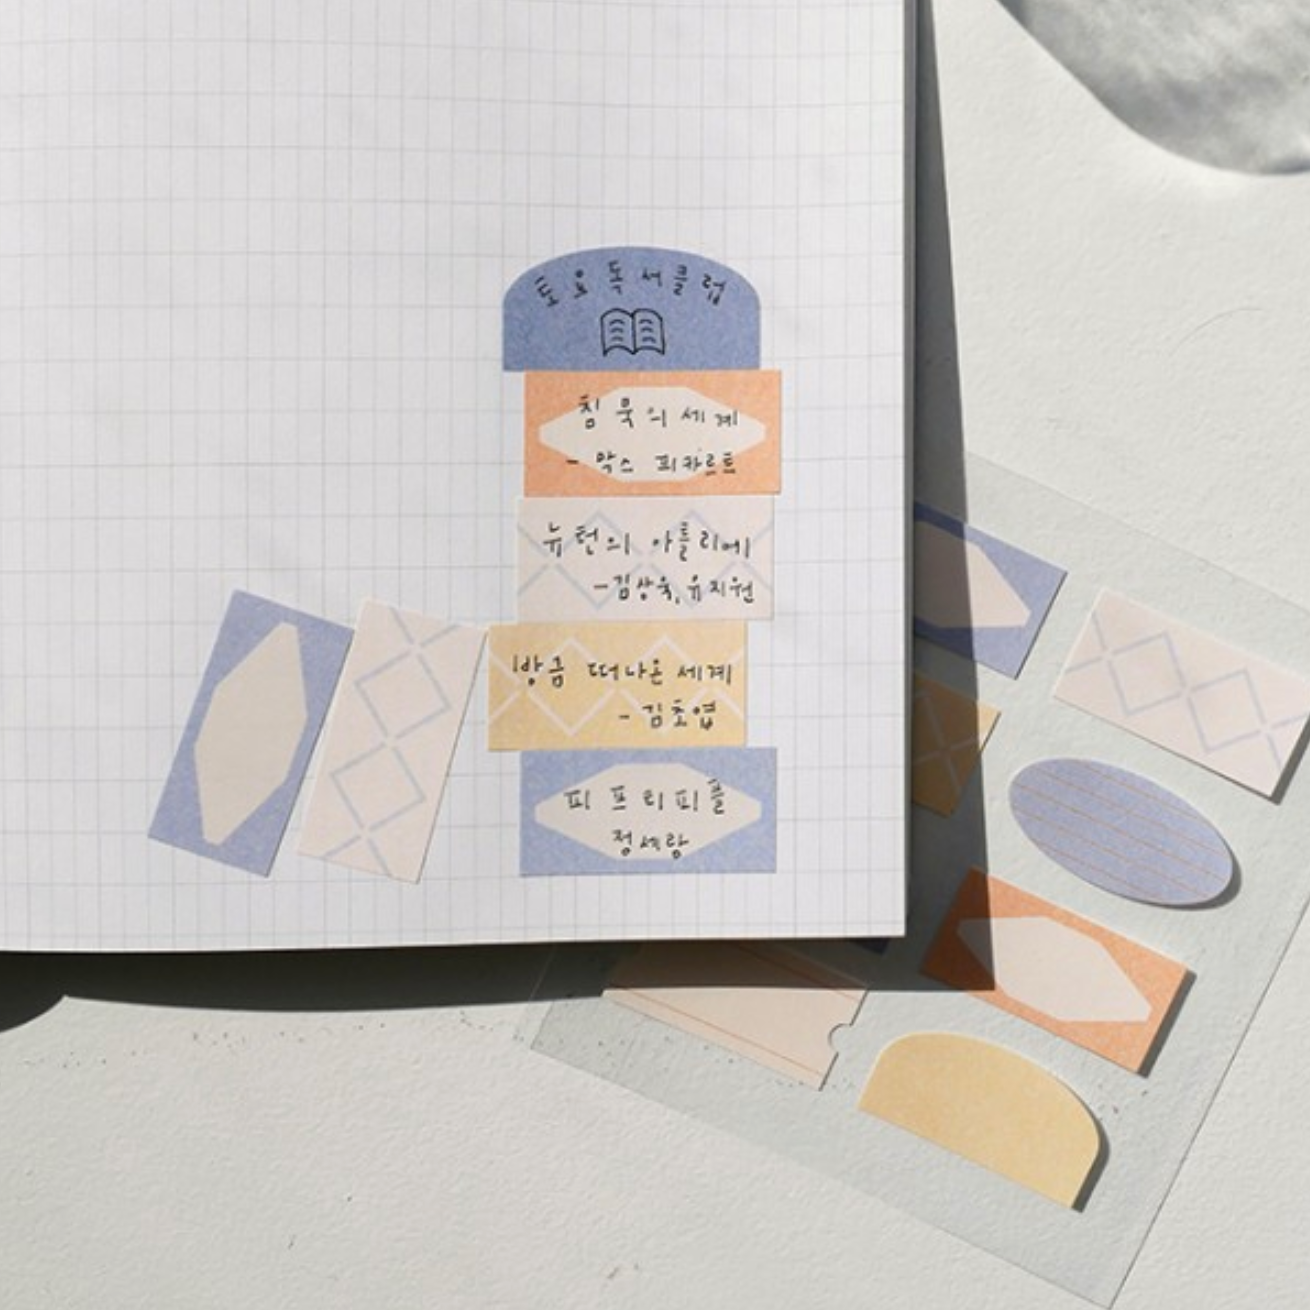 토요독서클럽
침묵의 세계
- 막스 피카르트
뉴턴의 아틀리에
-김상욱, 유지원
방금 떠나온 세계
- 김초엽
피프티피플
정세랑